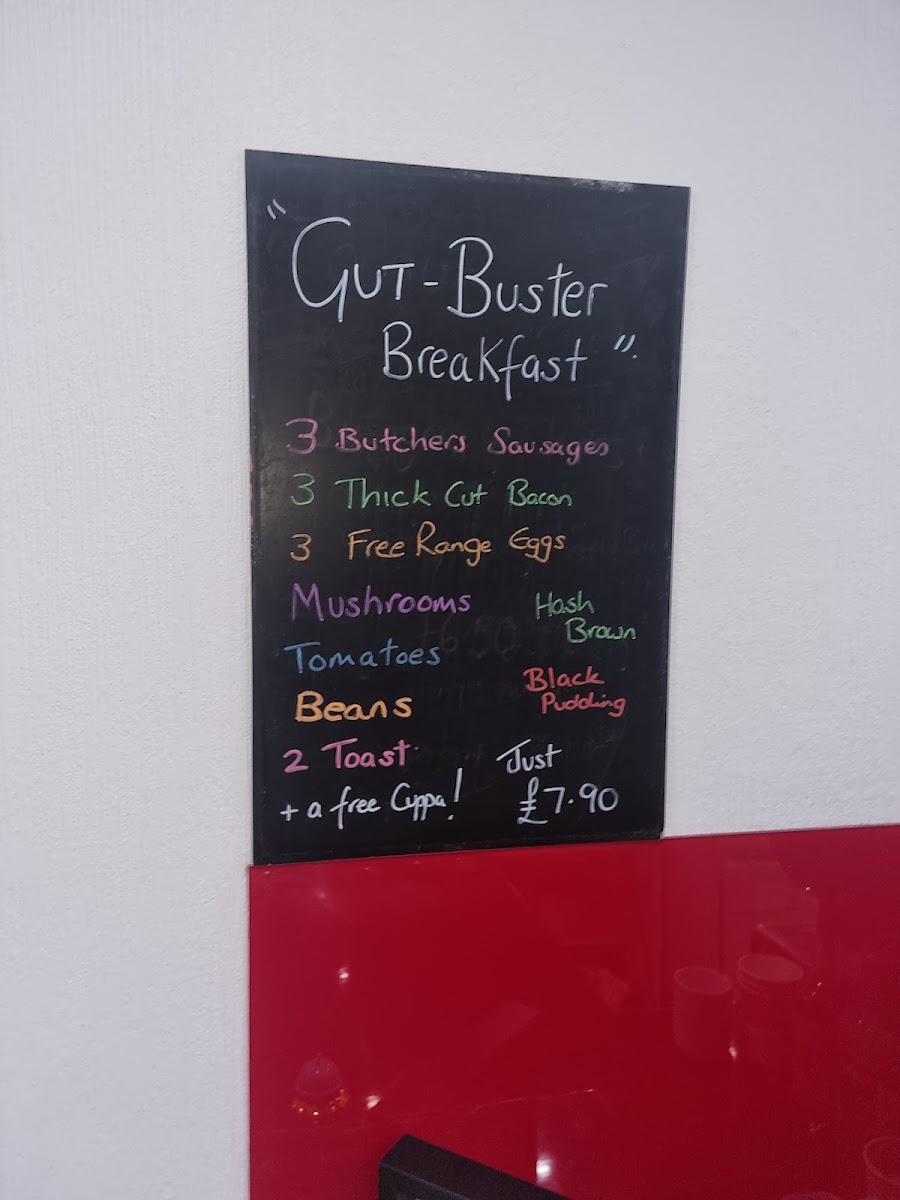 "Gut-Buster
Breakfast".
3 Butchers Sausages
3 Thick Cut Bacon
3 Free Range Eggs
Mushrooms
Tomatoes
Beans
2 Toast
+ a free Cuppa!
Hash
Brown
Black
Pudding
Just
£7.90